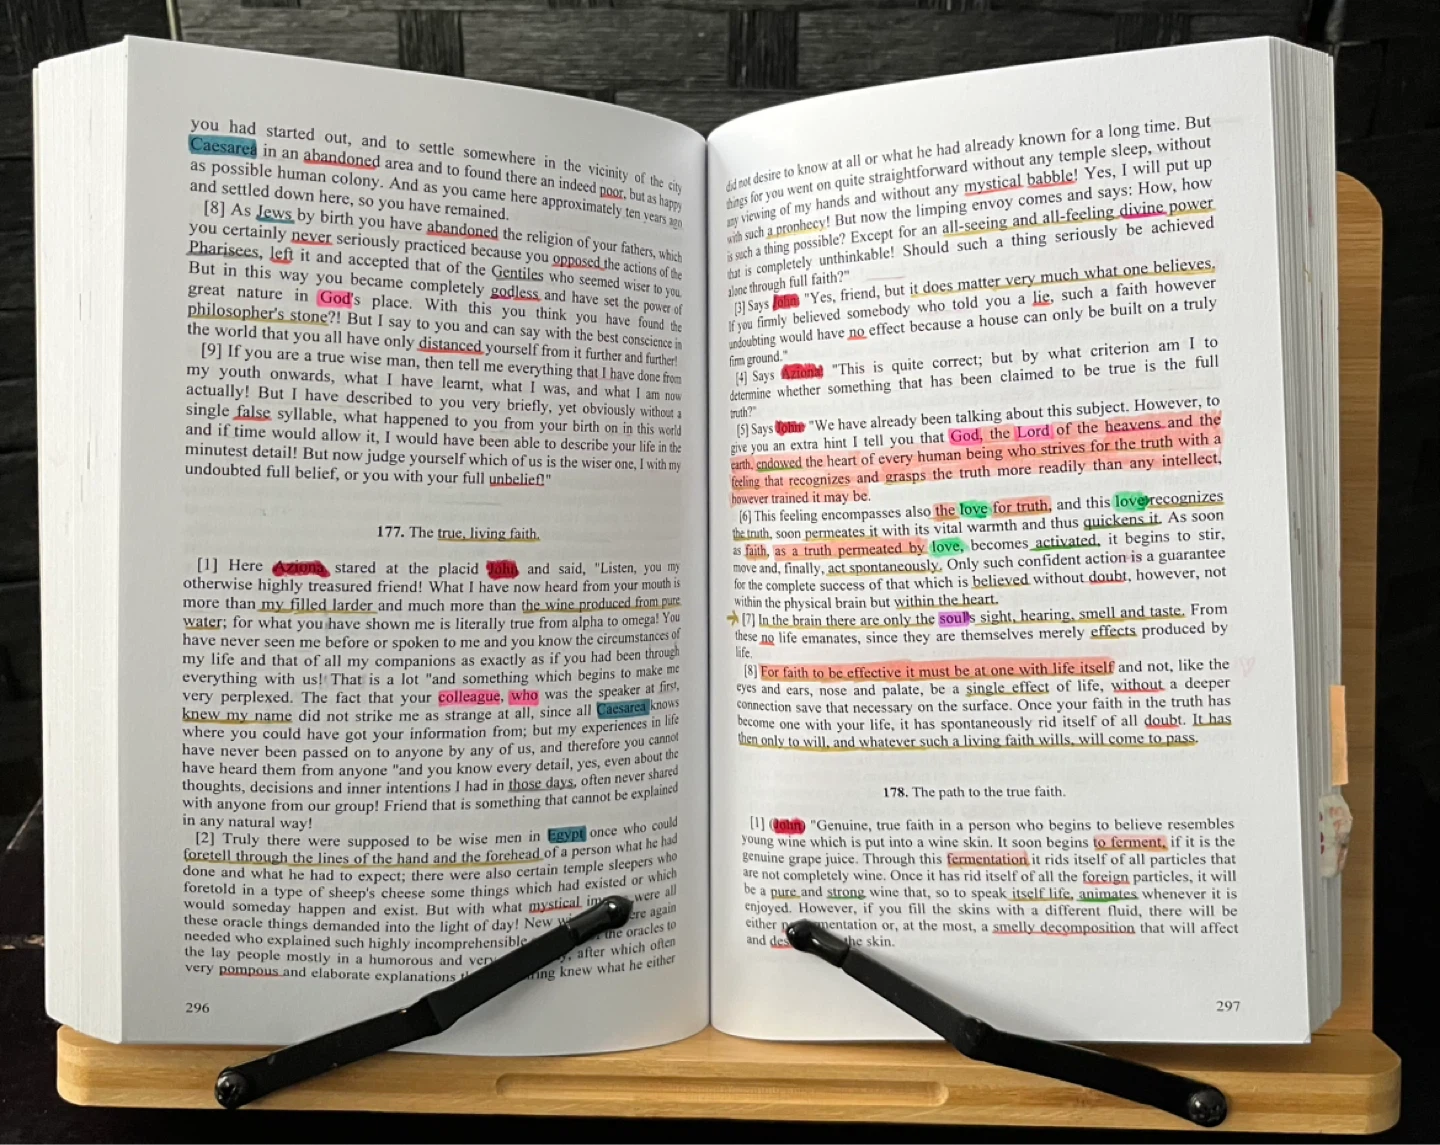 you had started out, and to settle somewhere in the vicinity of the city
Caesarea in an abandoned area and to found there an indeed poor, but as happy
as possible human colony. And as you came here approximately ten years ago
and settled down here, so you have remained.
[8] As Jews by birth you have abandoned the religion of your fathers, which
you certainly never seriously practiced because you opposed the actions of the
Pharisees, left it and accepted that of the Gentiles who seemed wiser to you.
But in this way you became completely godless and have set the power of
great nature in God's place. With this you think you have found the
philosopher's stone?! But I say to you and can say with the best conscience in
the world that you all have only distanced yourself from it further and further!
[9] If you are a true wise man, then tell me everything that I have done from
my youth onwards, what I have learnt, what I was, and what I am now
actually! But I have described to you very briefly, yet obviously without a
single false syllable, what happened to you from your birth on in this world
and if time would allow it, I would have been able to describe your life in the
minutest detail! But now judge yourself which of us is the wiser one, I with my
undoubted full belief, or you with your full unbelief!"
177. The true, living faith.
[1] Here Aziona stared at the placid John and said, "Listen, you my
otherwise highly treasured friend! What I have now heard from your mouth is
more than my filled larder and much more than the wine produced from pure
water; for what you have shown me is literally true from alpha to omega! You
have never seen me before or spoken to me and you know the circumstances of
my life and that of all my companions as exactly as if you had been through
everything with us! That is a lot "and something which begins to make me
very perplexed. The fact that your colleague, who was the speaker at first,
knew my name did not strike me as strange at all, since all Caesarea knows
where you could have got your information from; but my experiences in life
have never been passed on to anyone by any of us, and therefore you cannot
have heard them from anyone "and you know every detail, yes, even about the
thoughts, decisions and inner intentions I had in those days, often never shared
with anyone from our group! Friend that is something that cannot be explained
in any natural way!
[2] Truly there were supposed to be wise men in Egypt once who could
foretell through the lines of the hand and the forehead of a person what he had
done and what he had to expect; there were also certain temple sleepers who
foretold in a type of sheep's cheese some things which had existed or which
would someday happen and exist. But with what mystical were all
these oracle things demanded into the light of day! New again
needed who explained such highly incomprehensible the oracles to
the lay people mostly in a humorous and after which often
very pompous and elaborate explanations knew what he either
296
did not desire to know at all or what he had already known for a long time. But
things for you went on quite straightforward without any temple sleep, without
any viewing of my hands and without any mystical babble! Yes, I will put up
with such a prophecy! But now the limping envoy comes and says: How, how
is such a thing possible? Except for an all-seeing and all-feeling divine power
that is completely unthinkable! Should such a thing seriously be achieved
alone through full faith?"
[3] Says John "Yes, friend, but it does matter very much what one believes,
If you firmly believed somebody who told you a lie, such a faith however
undoubting would have no effect because a house can only be built on a truly
firm ground."
[4] Says Aziona: "This is quite correct; but by what criterion am I to
determine whether something that has been claimed to be true is the full
truth?"
[5] Says John: "We have already been talking about this subject. However, to
give you an extra hint I tell you that God, the Lord of the heavens and the
earth, endowed the heart of every human being who strives for the truth with a
feeling that recognizes and grasps the truth more readily than any intellect,
however trained it may be.
[6] This feeling encompasses also the love for truth, and this love recognizes
the truth, soon permeates it with its vital warmth and thus quickens it. As soon
as faith, as a truth permeated by love, becomes activated, it begins to stir,
move and, finally, act spontaneously. Only such confident action is a guarantee
for the complete success of that which is believed without doubt, however, not
within the physical brain but within the heart.
[7] In the brain there are only the soul's sight, hearing, smell and taste. From
these no life emanates, since they are themselves merely effects produced by
life.
[8] For faith to be effective it must be at one with life itself and not, like the
eyes and ears, nose and palate, be a single effect of life, without a deeper
connection save that necessary on the surface. Once your faith in the truth has
become one with your life, it has spontaneously rid itself of all doubt. It has
then only to will, and whatever such a living faith wills, will come to pass.
178. The path to the true faith.
[1] (John) "Genuine, true faith in a person who begins to believe resembles
young wine which is put into a wine skin. It soon begins to ferment, if it is the
genuine grape juice. Through this fermentation it rids itself of all particles that
are not completely wine. Once it has rid itself of all the foreign particles, it will
be a pure and strong wine that, so to speak itself life, animates whenever it is
enjoyed. However, if you fill the skins with a different fluid, there will be
either or, at the most, a smelly decomposition that will affect
and the skin.
297